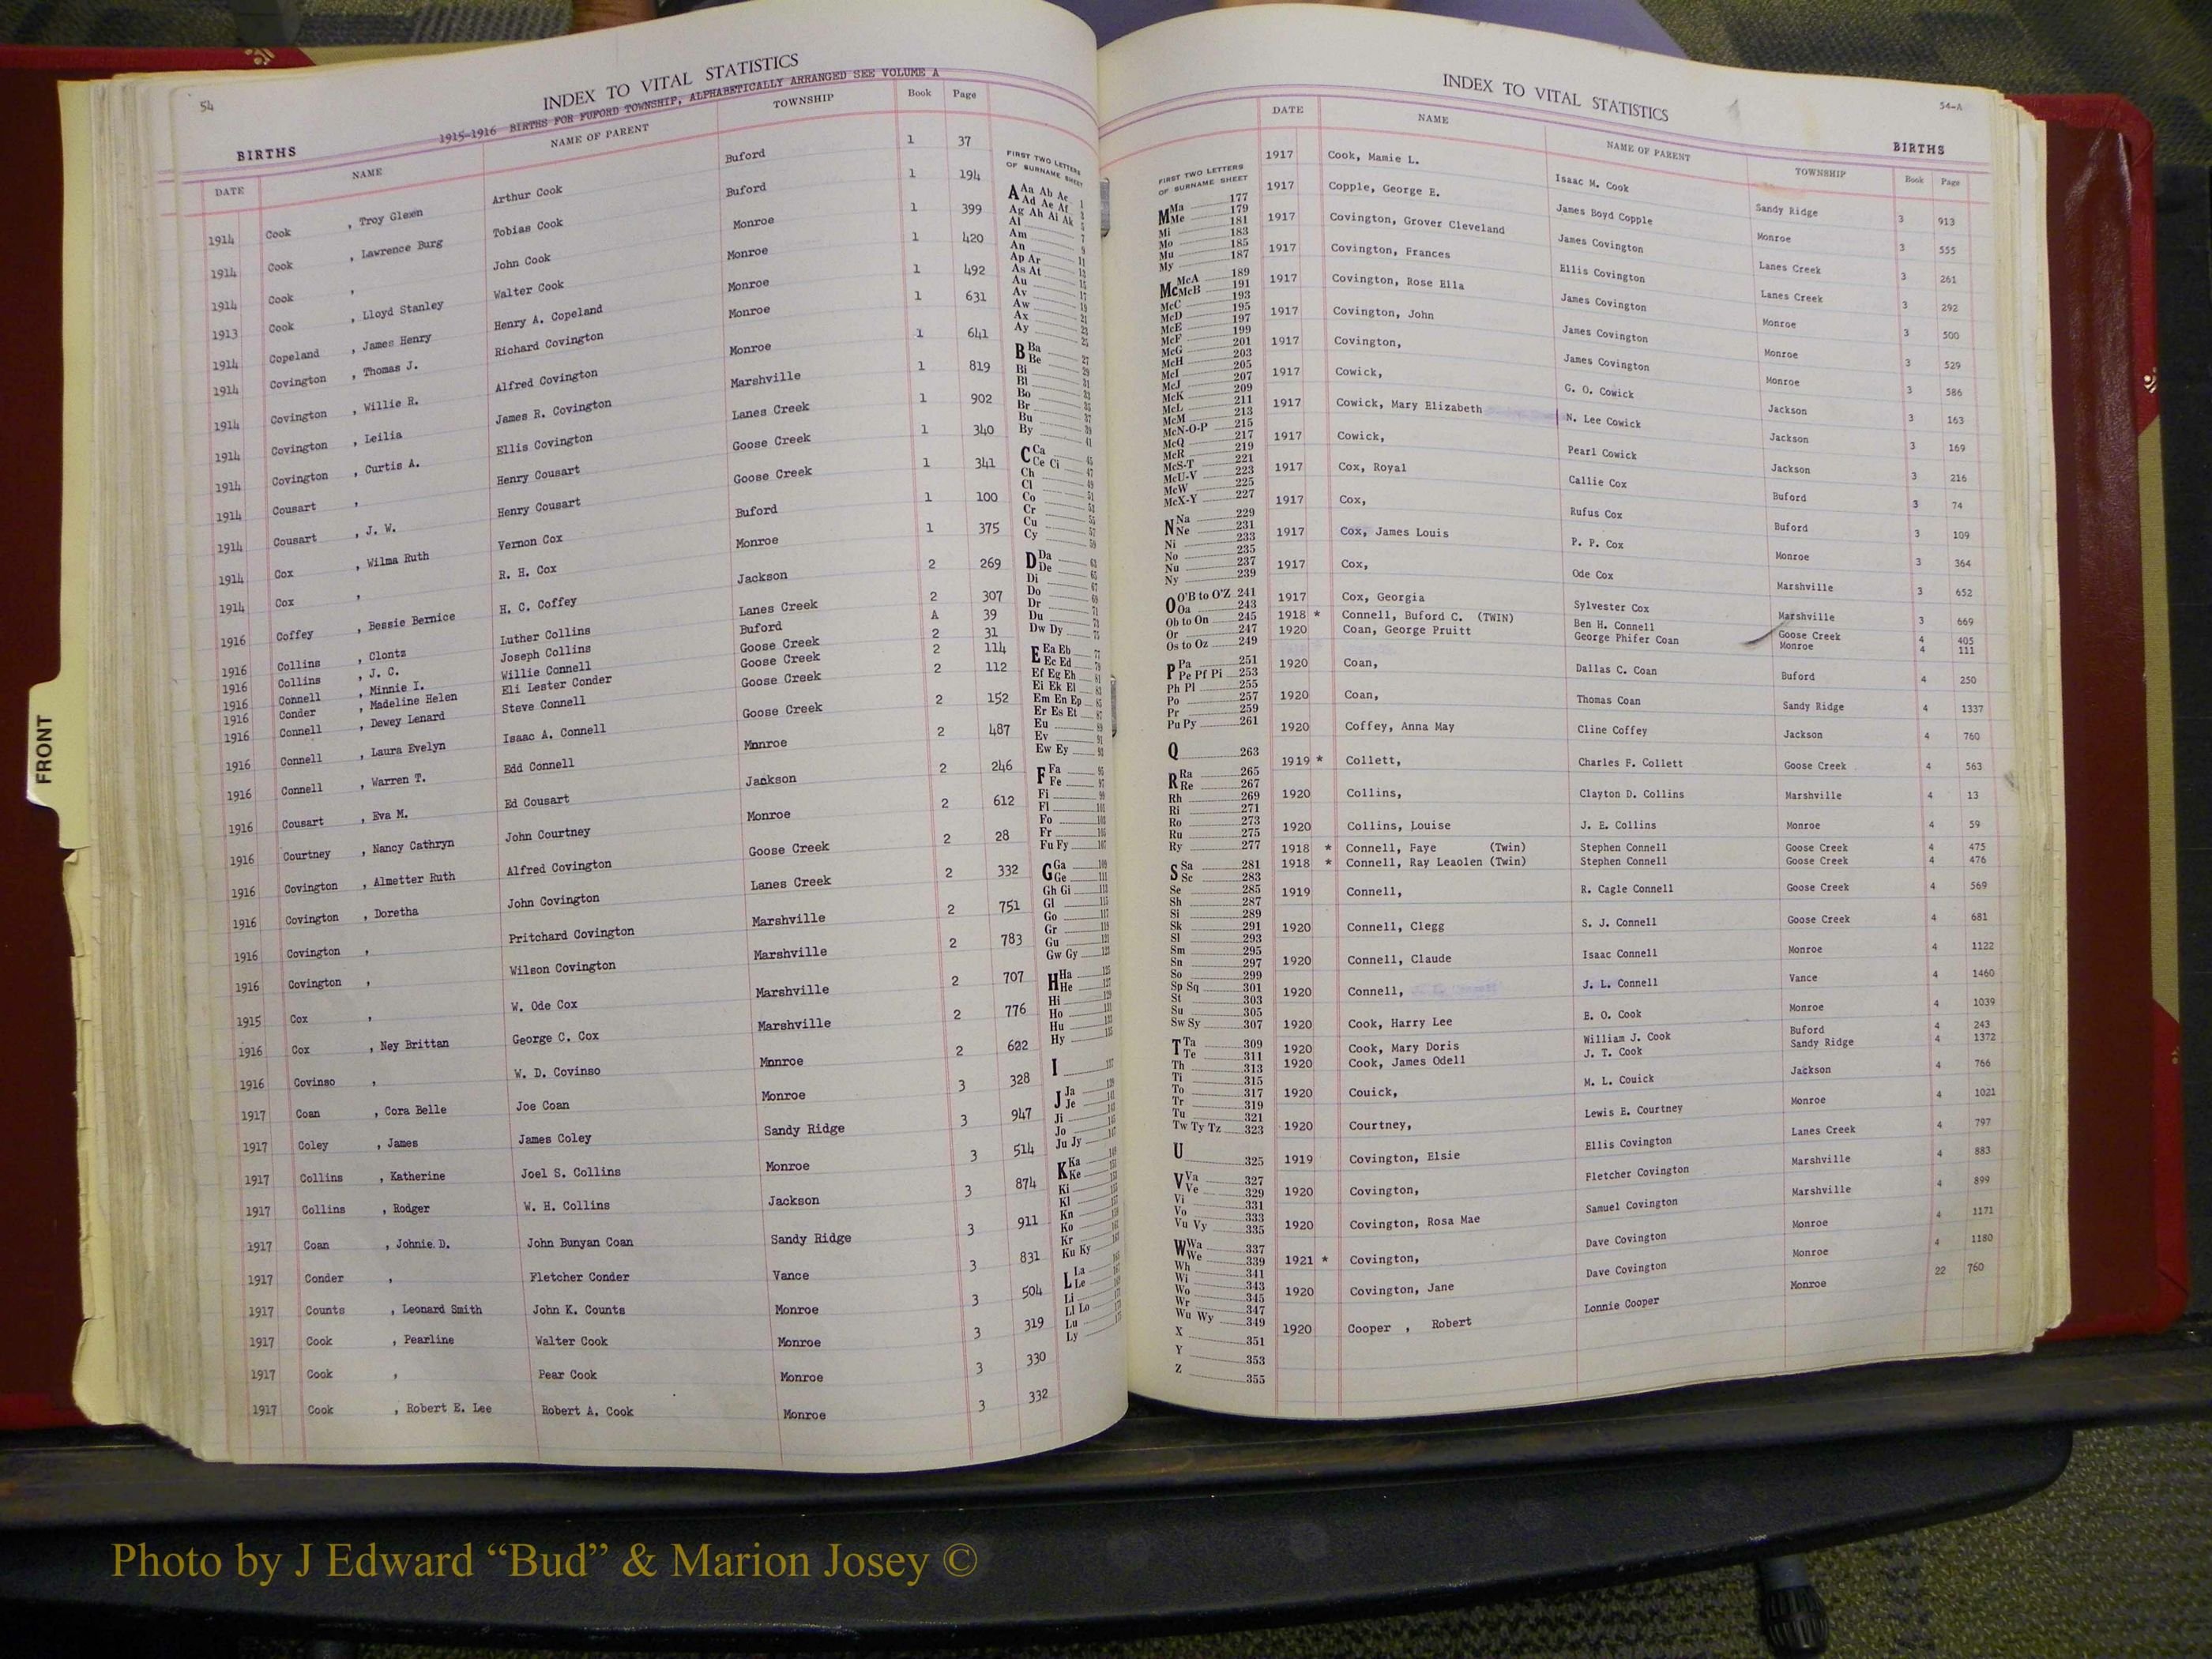 54
INDEX TO VITAL STATISTICS
1915-1916 BIRTHS FOR FUFORD TOWNSHIP, ALPHABETICALLY ARRANGED SEE VOLUME A
BIRTHS
DATE NAME NAME OF PARENT TOWNSHIP Book Page
1914 Cook , Troy Glexen Arthur Cook Buford 1 37
1914 Cook , Lawrence Burg Tobias Cook Buford 1 194
1914 Cook , John Cook Monroe 1 399
1913 Cook , Lloyd Stanley Walter Cook Monroe 1 420
1914 Copeland , James Henry Henry A. Copeland Monroe 1 492
1914 Covington , Thomas J. Richard Covington Monroe 1 631
1914 Covington , Willie R. Alfred Covington Monroe 1 641
1914 Covington , Leilia James R. Covington Marshville 1 819
1914 Covington , Curtis A. Ellis Covington Lanes Creek 1 902
1914 Cousart , Henry Cousart Goose Creek 1 340
1914 Cousart , J. W. Henry Cousart Goose Creek 1 341
1914 Cox , Wilma Ruth Vernon Cox Buford 1 100
1914 Cox , R. H. Cox Monroe 1 375
1916 Coffey , Bessie Bernice H. C. Coffey Jackson 2 269
1916 Collins , Clontz Luther Collins Lanes Creek 2 307
1916 Collins , J. C. Joseph Collins Buford A 39
1916 Connell , Minnie I. Willie Connell Goose Creek 2 31
1916 Conder , Madeline Helen Eli Lester Conder Goose Creek 2 114
1916 Connell , Dewey Lenard Steve Connell Goose Creek 2 112
1916 Connell , Laura Evelyn Isaac A. Connell Goose Creek 2 152
1916 Connell , Warren T. Edd Connell Monroe 2 487
1916 Cousart , Eva M. Ed Cousart Jackson 2 246
1916 Courtney , Nancy Cathryn John Courtney Monroe 2 612
1916 Covington , Almetter Ruth Alfred Covington Goose Creek 2 28
1916 Covington , Doretha John Covington Lanes Creek 2 332
1916 Covington , Pritchard Covington Marshville 2 751
1916 Covington , Wilson Covington Marshville 2 783
1915 Cox , W. Ode Cox Marshville 2 707
1916 Cox , Ney Brittan George C. Cox Marshville 2 776
1916 Covinso , W. D. Covinso Monroe 2 622
1917 Coan , Cora Belle Joe Coan Monroe 3 328
1917 Coley , James James Coley Sandy Ridge 3 947
1917 Collins , Katherine Joel S. Collins Monroe 3 514
1917 Collins , Rodger W. H. Collins Jackson 3 874
1917 Coan , Johnie D. John Bunyan Coan Sandy Ridge 3 911
1917 Conder , Fletcher Conder Vance 3 831
1917 Counts , Leonard Smith John K. Counts Monroe 3 504
1917 Cook , Pearline Walter Cook Monroe 3 319
1917 Cook , Pear Cook Monroe 3 330
1917 Cook , Robert E. Lee Robert A. Cook Monroe 3 332
FIRST TWO LETTERS
OF SURNAME SHEET
A Aa Ab Ac 1
Ad Ae Af 3
Ag Ah Ai Ak 5
Al 7
Am 9
An 11
Ap Ar 13
As At 15
Au 17
Av 19
Aw 21
Ax 23
Ay 25
B Ba 27
Be 29
Bi 31
Bl 33
Bo 35
Br 37
Bu 39
By 41
C Ca 45
Ce Ci 47
Ch 49
Cl 51
Co 53
Cr 55
Cu 57
Cy 59
D Da 63
De 65
Di 67
Do 69
Dr 71
Du 73
Dw Dy 75
E Ea Eb 77
Ec Ed 79
Ef Eg Eh 81
Ei Ek El 83
Em En Ep 85
Er Es Et 87
Eu 89
Ev 91
Ew Ey 93
F Fa 95
Fe 97
Fi 99
Fl 101
Fo 103
Fr 105
Fu Fy 107
G Ga 109
Ge 111
Gh Gi 113
Gl 115
Go 117
Gr 119
Gu 121
Gw Gy 123
H Ha 125
He 127
Hi 129
Ho 131
Hu 133
Hy 135
I 137
J Ja 139
Je 141
Ji 143
Jo 145
Ju Jy 147
K Ka 149
Ke 151
Ki
Kl
Kn
Ko
Kr
Ku Ky
L La
Le
Li
Ll Lo
Lu
Ly
FRONT
INDEX TO VITAL STATISTICS
54-A
BIRTHS
FIRST TWO LETTERS
OF SURNAME SHEET
M Ma 177
Me 179
Mi 181
Mo 183
Mu 185
My 187
Mc McA 189
McB 191
McC 193
McD 195
McE 197
McF 199
McG 201
McH 203
McI 205
McJ 207
McK 209
McL 211
McM 213
McN-O-P 215
McQ 217
McR 219
McS-T 221
McU-V 223
McW 225
McX-Y 227
N Na 229
Ne 231
Ni 233
No 235
Nu 237
Ny 239
O O'B to O'Z 241
Oa 243
Ob to On 245
Or 247
Os to Oz 249
P Pa 251
Pe Pf Pi 253
Ph Pl 255
Po 257
Pr 259
Pu Py 261
Q 263
R Ra 265
Re 267
Rh 269
Ri 271
Ro 273
Ru 275
Ry 277
S Sa 281
Sc 283
Se 285
Sh 287
Si 289
Sk 291
Sl 293
Sm 295
Sn 297
So 299
Sp Sq 301
St 303
Su 305
Sw Sy 307
T Ta 309
Te 311
Th 313
Ti 315
To 317
Tr 319
Tu 321
Tw Ty Tz 323
U 325
V Va 327
Ve 329
Vi 331
Vo 333
Vu Vy 335
W Wa 337
We 339
Wh 341
Wi 343
Wo 345
Wr 347
Wu Wy 349
X 351
Y 353
Z 355
DATE NAME NAME OF PARENT TOWNSHIP Book Page
1917 Cook, Mamie L. Isaac M. Cook Sandy Ridge 3 913
1917 Copple, George E. James Boyd Copple Monroe 3 555
1917 Covington, Grover Cleveland James Covington Lanes Creek 3 261
1917 Covington, Frances Ellis Covington Lanes Creek 3 292
1917 Covington, Rose Ella James Covington Monroe 3 500
1917 Covington, John James Covington Monroe 3 529
1917 Covington, James Covington Monroe 3 586
1917 Cowick, G. O. Cowick Jackson 3 163
1917 Cowick, Mary Elizabeth N. Lee Cowick Jackson 3 169
1917 Cowick, Pearl Cowick Jackson 3 216
1917 Cox, Royal Callie Cox Buford 3 74
1917 Cox, Rufus Cox Buford 3 109
1917 Cox, James Louis P. P. Cox Monroe 3 364
1917 Cox, Ode Cox Marshville 3 652
1917 Cox, Georgia Sylvester Cox Marshville 3 669
1918 * Connell, Buford C. (TWIN) Ben H. Connell Goose Creek 4 405
1920 Coan, George Pruitt George Phifer Coan Monroe 4 111
1920 Coan, Dallas C. Coan Buford 4 250
1920 Coan, Thomas Coan Sandy Ridge 4 1337
1920 Coffey, Anna May Cline Coffey Jackson 4 760
1919 * Collett, Charles F. Collett Goose Creek 4 563
1920 Collins, Clayton D. Collins Marshville 4 13
1920 Collins, Louise J. E. Collins Monroe 4 59
1918 * Connell, Faye (Twin) Stephen Connell Goose Creek 4 475
1918 * Connell, Ray Leaolen (Twin) Stephen Connell Goose Creek 4 476
1919 Connell, R. Cagle Connell Goose Creek 4 569
1920 Connell, Clegg S. J. Connell Goose Creek 4 681
1920 Connell, Claude Isaac Connell Monroe 4 1122
1920 Connell, J. L. Connell Vance 4 1460
1920 Cook, Harry Lee E. O. Cook Monroe 4 1039
1920 Cook, Mary Doris William J. Cook Buford 4 243
1920 Cook, James Odell J. T. Cook Sandy Ridge 4 1372
1920 Couick, M. L. Couick Jackson 4 766
1920 Courtney, Lewis E. Courtney Monroe 4 1021
1919 Covington, Elsie Ellis Covington Lanes Creek 4 797
1920 Covington, Fletcher Covington Marshville 4 883
1920 Covington, Rosa Mae Samuel Covington Marshville 4 899
1921 * Covington, Dave Covington Monroe 4 1171
1920 Covington, Jane Dave Covington Monroe 4 1180
1920 Cooper , Robert Lonnie Cooper Monroe 22 760
Photo by J Edward “Bud” & Marion Josey ©